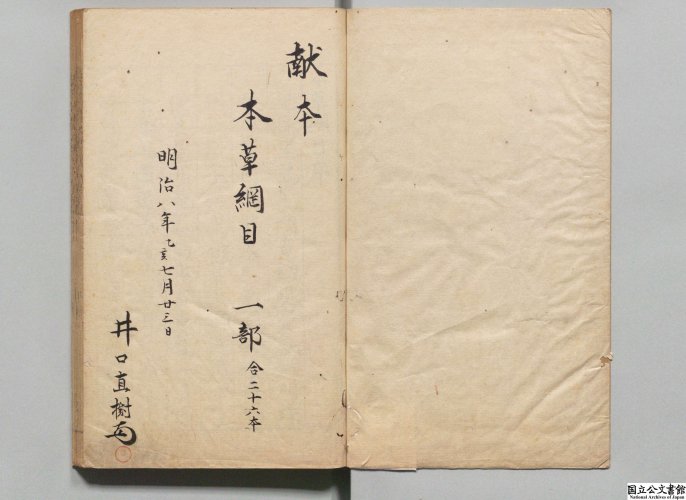 献本
本草綱目 一部 合二十六本
明治八年乙亥七月廿三日
井口直樹
国立公文書館
National Archives of Japan